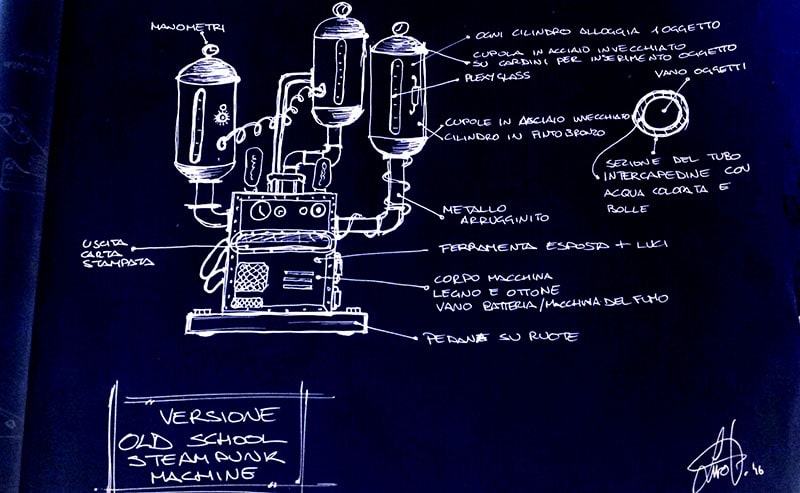 MANOMETRI
OGNI CILINDRO ALLOGGIA 1 OGGETTO
CUPOLA IN ACCIAIO INVECCHIATO
SU CARDINI PER INSERIMENTO OGGETTO
PLEXYGLASS
VANO OGGETTI
CUPOLE IN ACCIAIO INVECCHIATO
CILINDRO IN FINTO BRONZO
SEZIONE DEL TUBO
INTERCAPEDINE CON
ACQUA COLORATA E
BOLLE
METALLO
ARRUGGINITO
USCITA
CARTA
STAMPATA
FERRAMENTA ESPOSTA + LUCI
CORPO MACCHINA
LEGNO E OTTONE
VANO BATTERIA/MACCHINA DEL FUMO
PEDANA SU RUOTE
VERSIONE
OLD SCHOOL
STEAMPUNK
MACHINE